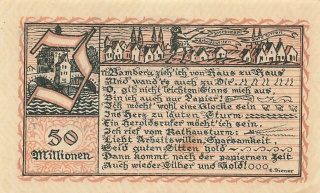 In Bamberg zieh' ich von Haus zu Haus
Und wand're auch zu Dir
O, gib nicht leichten Sinns mich aus
Bin ich auch nur Papier!
Ich möcht' wohl eine Glocke sein
Ins Herz zu läuten, Sturm
Ein Heroldsrufer möcht' ich sein
Ich rief vom Rathausturm:
Liebt Arbeitswillen, Sparsamkeit
Seid guten Willen hold
Dann kommt nach der papiernen Zeit
Auch wieder Silber und Gold!
50
Millionen